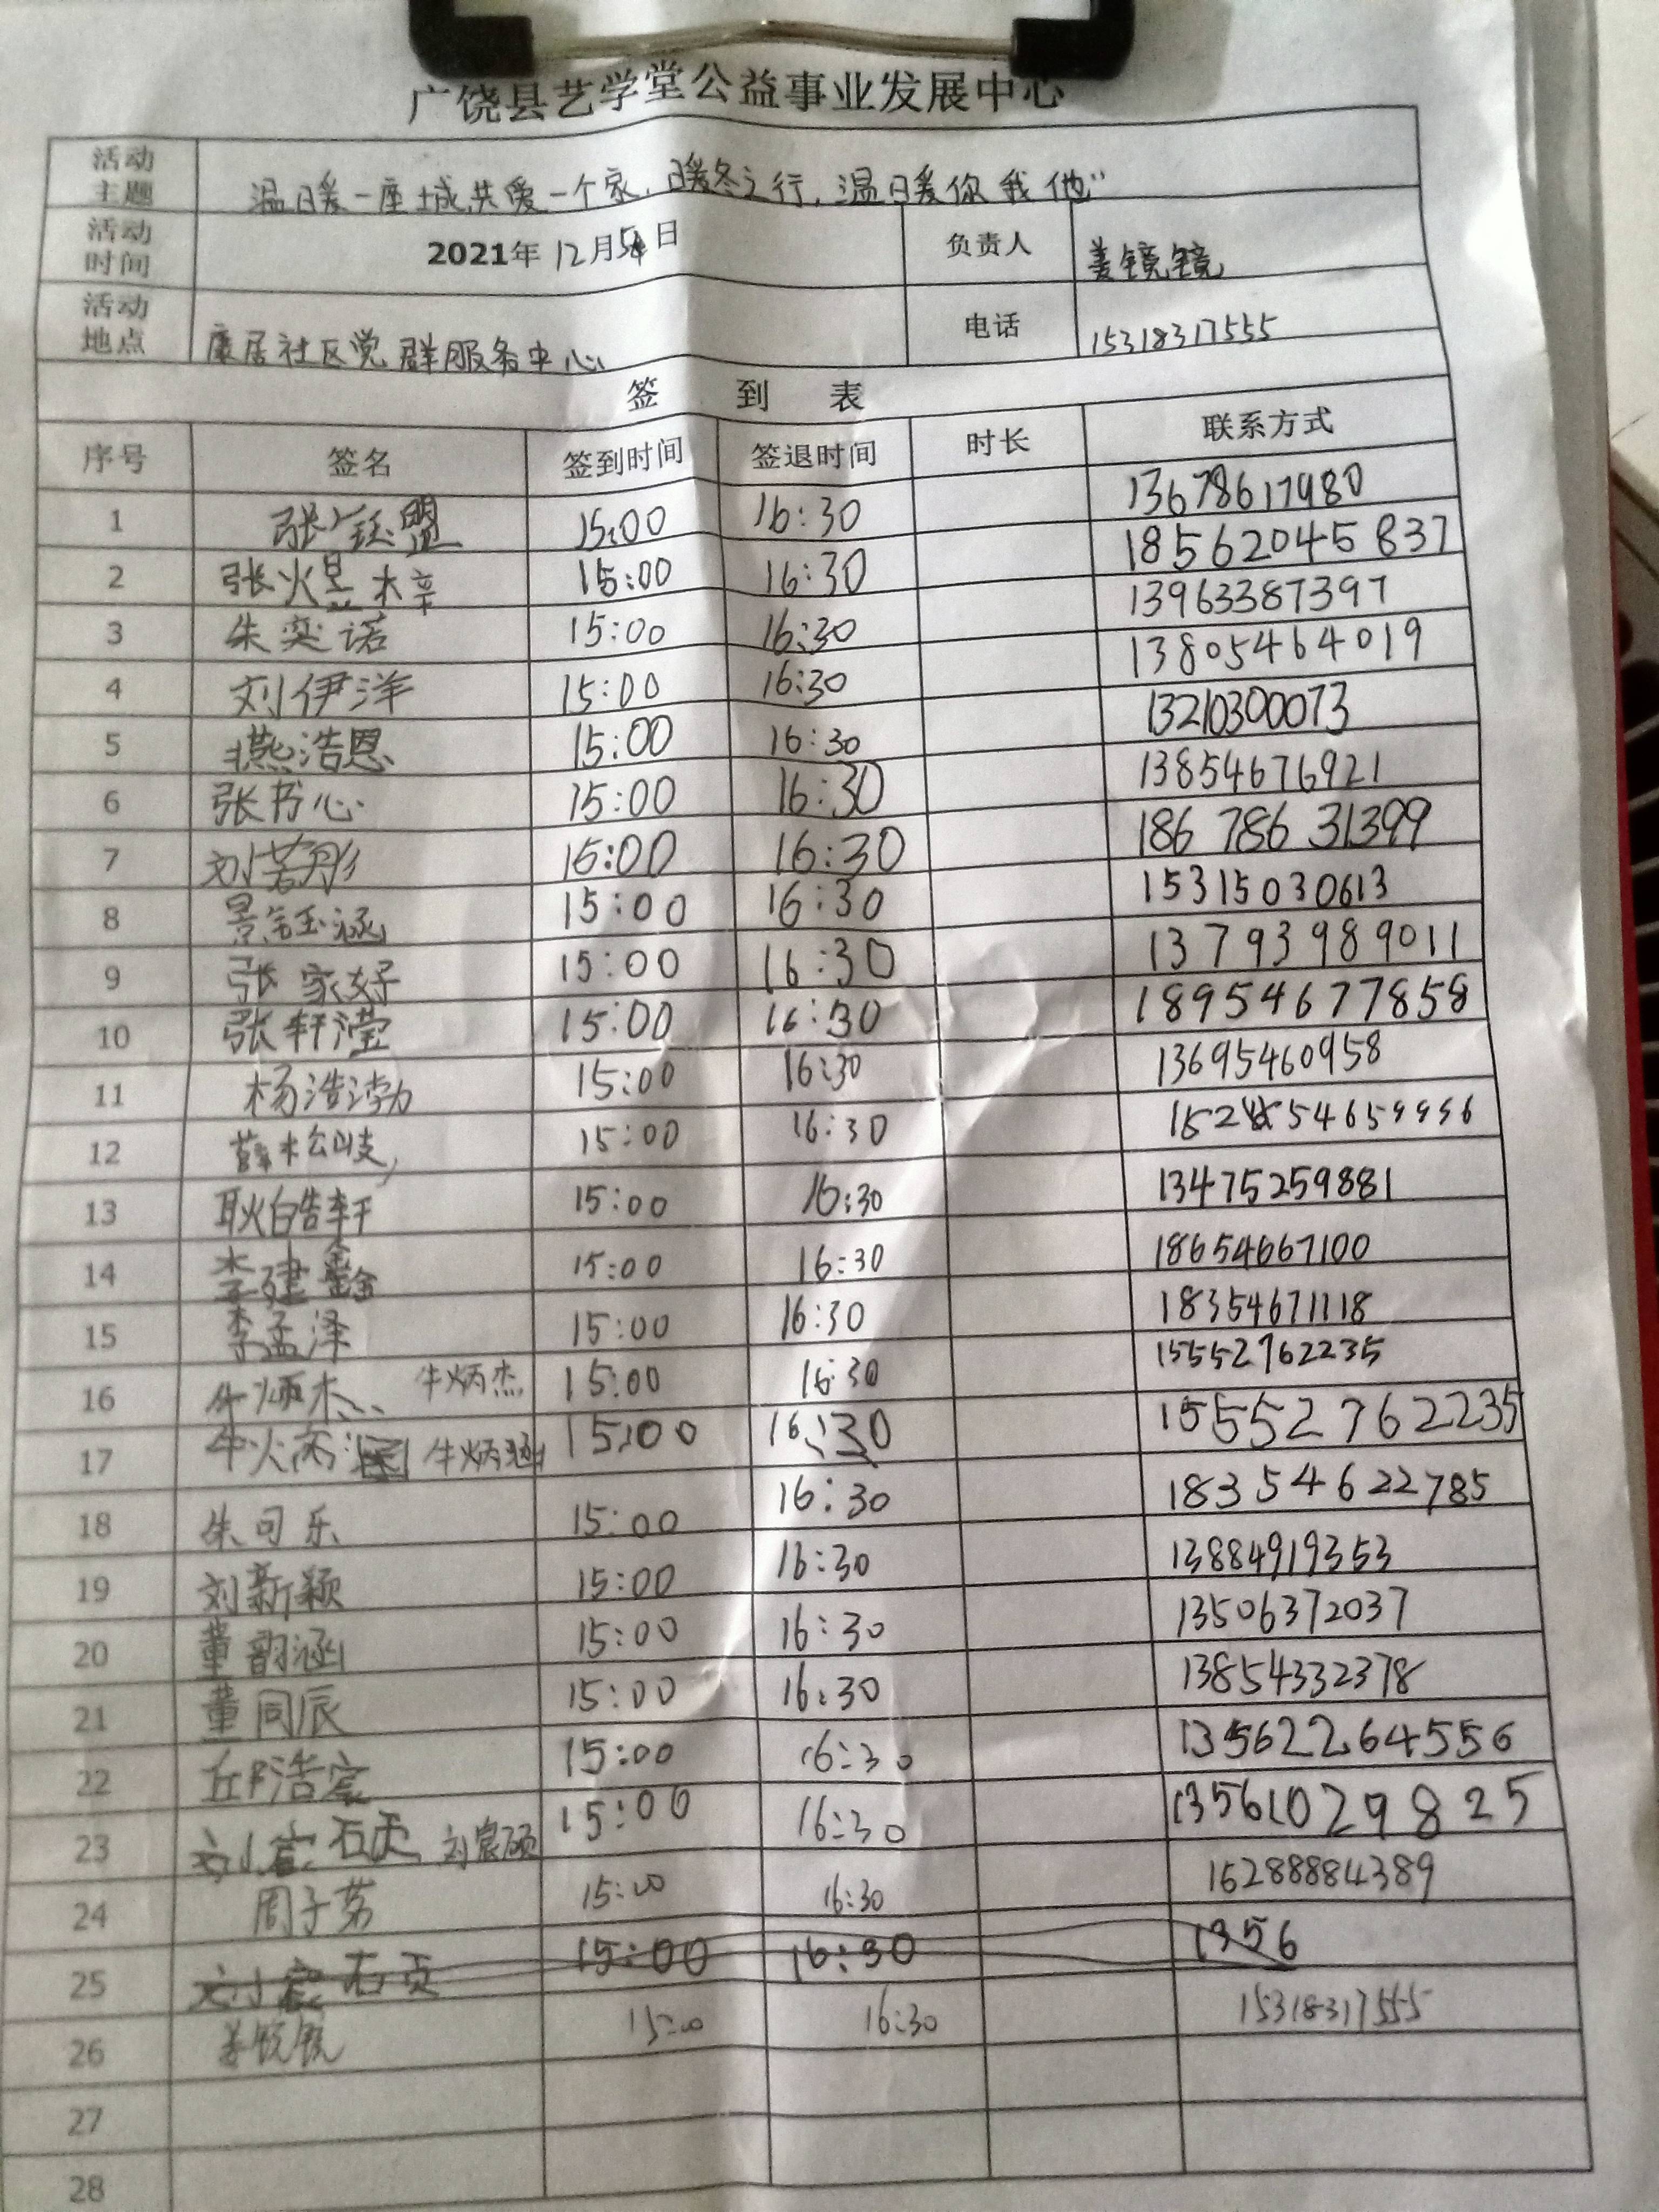 广饶县艺学堂公益事业发展中心
活动主题 温暖一座城,共爱一个家,暖冬之行,温暖你我他"
活动时间 2021年12月5日 负责人 姜镜镜
活动地点 康居社区党群服务中心 电话 15318317555
签 到 表
序号 签名 签到时间 签退时间 时长 联系方式
1 张钰盟 15:00 16:30 13678617980
2 张焜梓 15:00 16:30 18562045837
3 朱奕诺 15:00 16:30 13963387397
4 刘伊洋 15:00 16:30 13805464019
5 燕浩恩 15:00 16:30 13210300073
6 张书心 15:00 16:30 13854676921
7 刘若彤 15:00 16:30 18678631399
8 景钰涵 15:00 16:30 15315030613
9 张家好 15:00 16:30 13793989011
10 张轩滢 15:00 16:30 18954677858
11 杨浩渤 15:00 16:30 13695460958
12 薛松岐 15:00 16:30
13 耿皓轩 15:00 16:30 13475259881
14 李建鑫 15:00 16:30 18654667100
15 李孟泽 15:00 16:30 18354671118
16 牛炳杰 牛炳杰 15:00 16:30 15552762235
17 牛炳涵 牛炳涵 15:00 16:30 15552762235
18 朱可乐 15:00 16:30 18354622785
19 刘新颖 15:00 16:30 13884919353
20 董韵涵 15:00 16:30 13506372037
21 董同辰 15:00 16:30 13854332378
22 邱浩宸 15:00 16:30 13562264556
23 刘宸硕 刘宸硕 15:00 16:30 13561029825
24 周子茗 15:00 16:30 15288884389
25 刘宸硕 15:00 16:30 1356
26 姜镜镜 15:00 16:30 15318317555
27
28